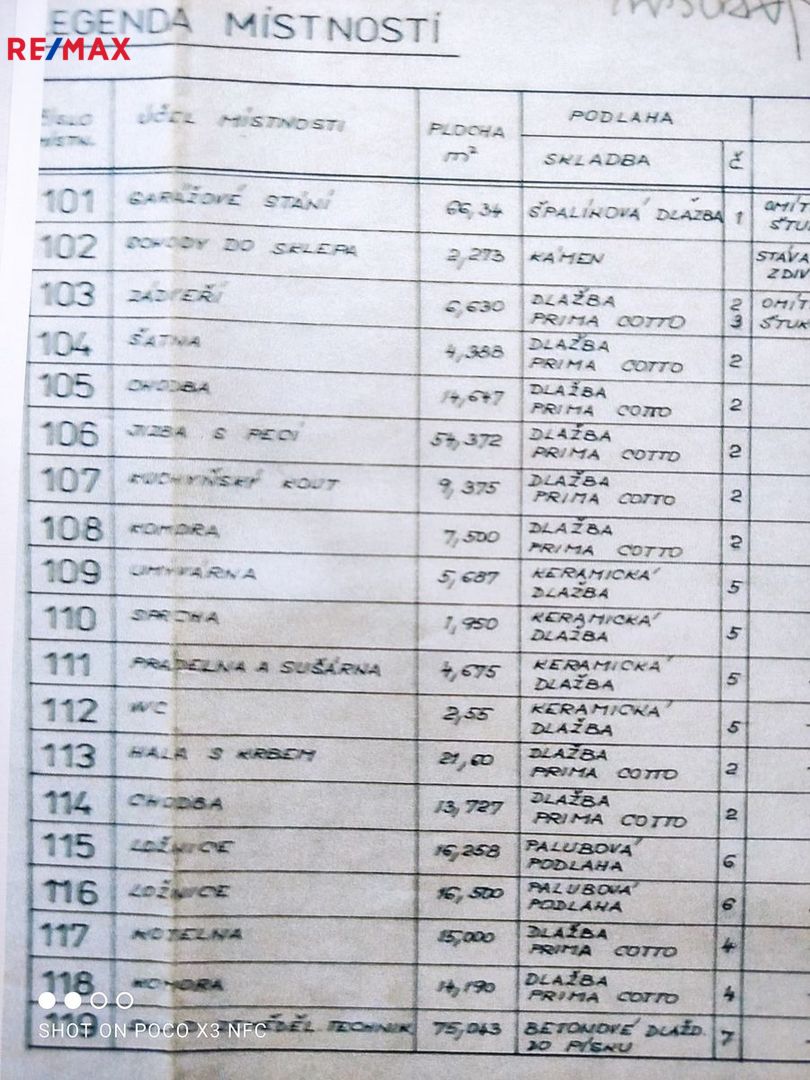 LEGENDA MÍSTNOSTÍ
RE/MAX
ČÍSLO MÍSTN. ÚČEL MÍSTNOSTI PLOCHA m² PODLAHA
SKLADBA Č
101 GARÁŽOVÉ STÁNÍ 66,34 ŠPALÍKOVÁ DLAŽBA 1 OMÍT
ŠTU
102 SCHODY DO SKLEPA 2,273 KÁMEN STÁVA
ZDIV
103 ZÁDVEŘÍ 6,630 DLAŽBA 2 OMÍT
PRIMA COTTO 3 ŠTUK
104 ŠATNA 4,388 DLAŽBA
PRIMA COTTO 2
105 CHODBA 14,647 DLAŽBA
PRIMA COTTO 2
106 JIZBA S PECÍ 54,372 DLAŽBA
PRIMA COTTO 2
107 KUCHYŇSKÝ KOUT 9,375 DLAŽBA
PRIMA COTTO 2
108 KOMORA 7,500 DLAŽBA
PRIMA COTTO 2
109 UMÝVÁRNA 5,687 KERAMICKÁ
DLAŽBA 5
110 SPRCHA 1,950 KERAMICKÁ
DLAŽBA 5
111 PRÁDELNA A SUŠÁRNA 4,675 KERAMICKÁ
DLAŽBA 5
112 WC 2,55 KERAMICKÁ
DLAŽBA 5
113 HALA S KRBEM 21,60 DLAŽBA
PRIMA COTTO 2
114 CHODBA 13,727 DLAŽBA
PRIMA COTTO 2
115 LOŽNICE 16,258 PALUBOVÁ
PODLAHA 6
116 LOŽNICE 16,500 PALUBOVÁ
PODLAHA 6
117 KOTELNA 15,000 DLAŽBA
PRIMA COTTO 4
118 KOMORA 14,190 DLAŽBA
PRIMA COTTO 4
119 TECHNIK 75,043 BETONOVÉ DLAŽD.
DO PÍSKU 7
SHOT ON POCO X3 NFC